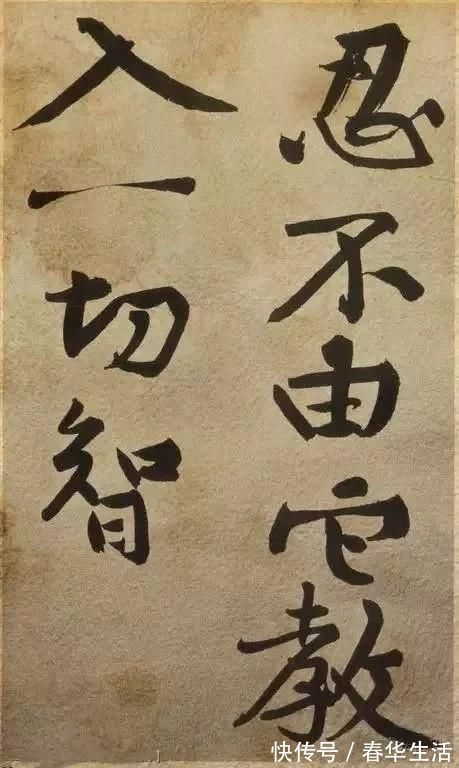 忍不由它教
入一切智
快传号 / 春华生活